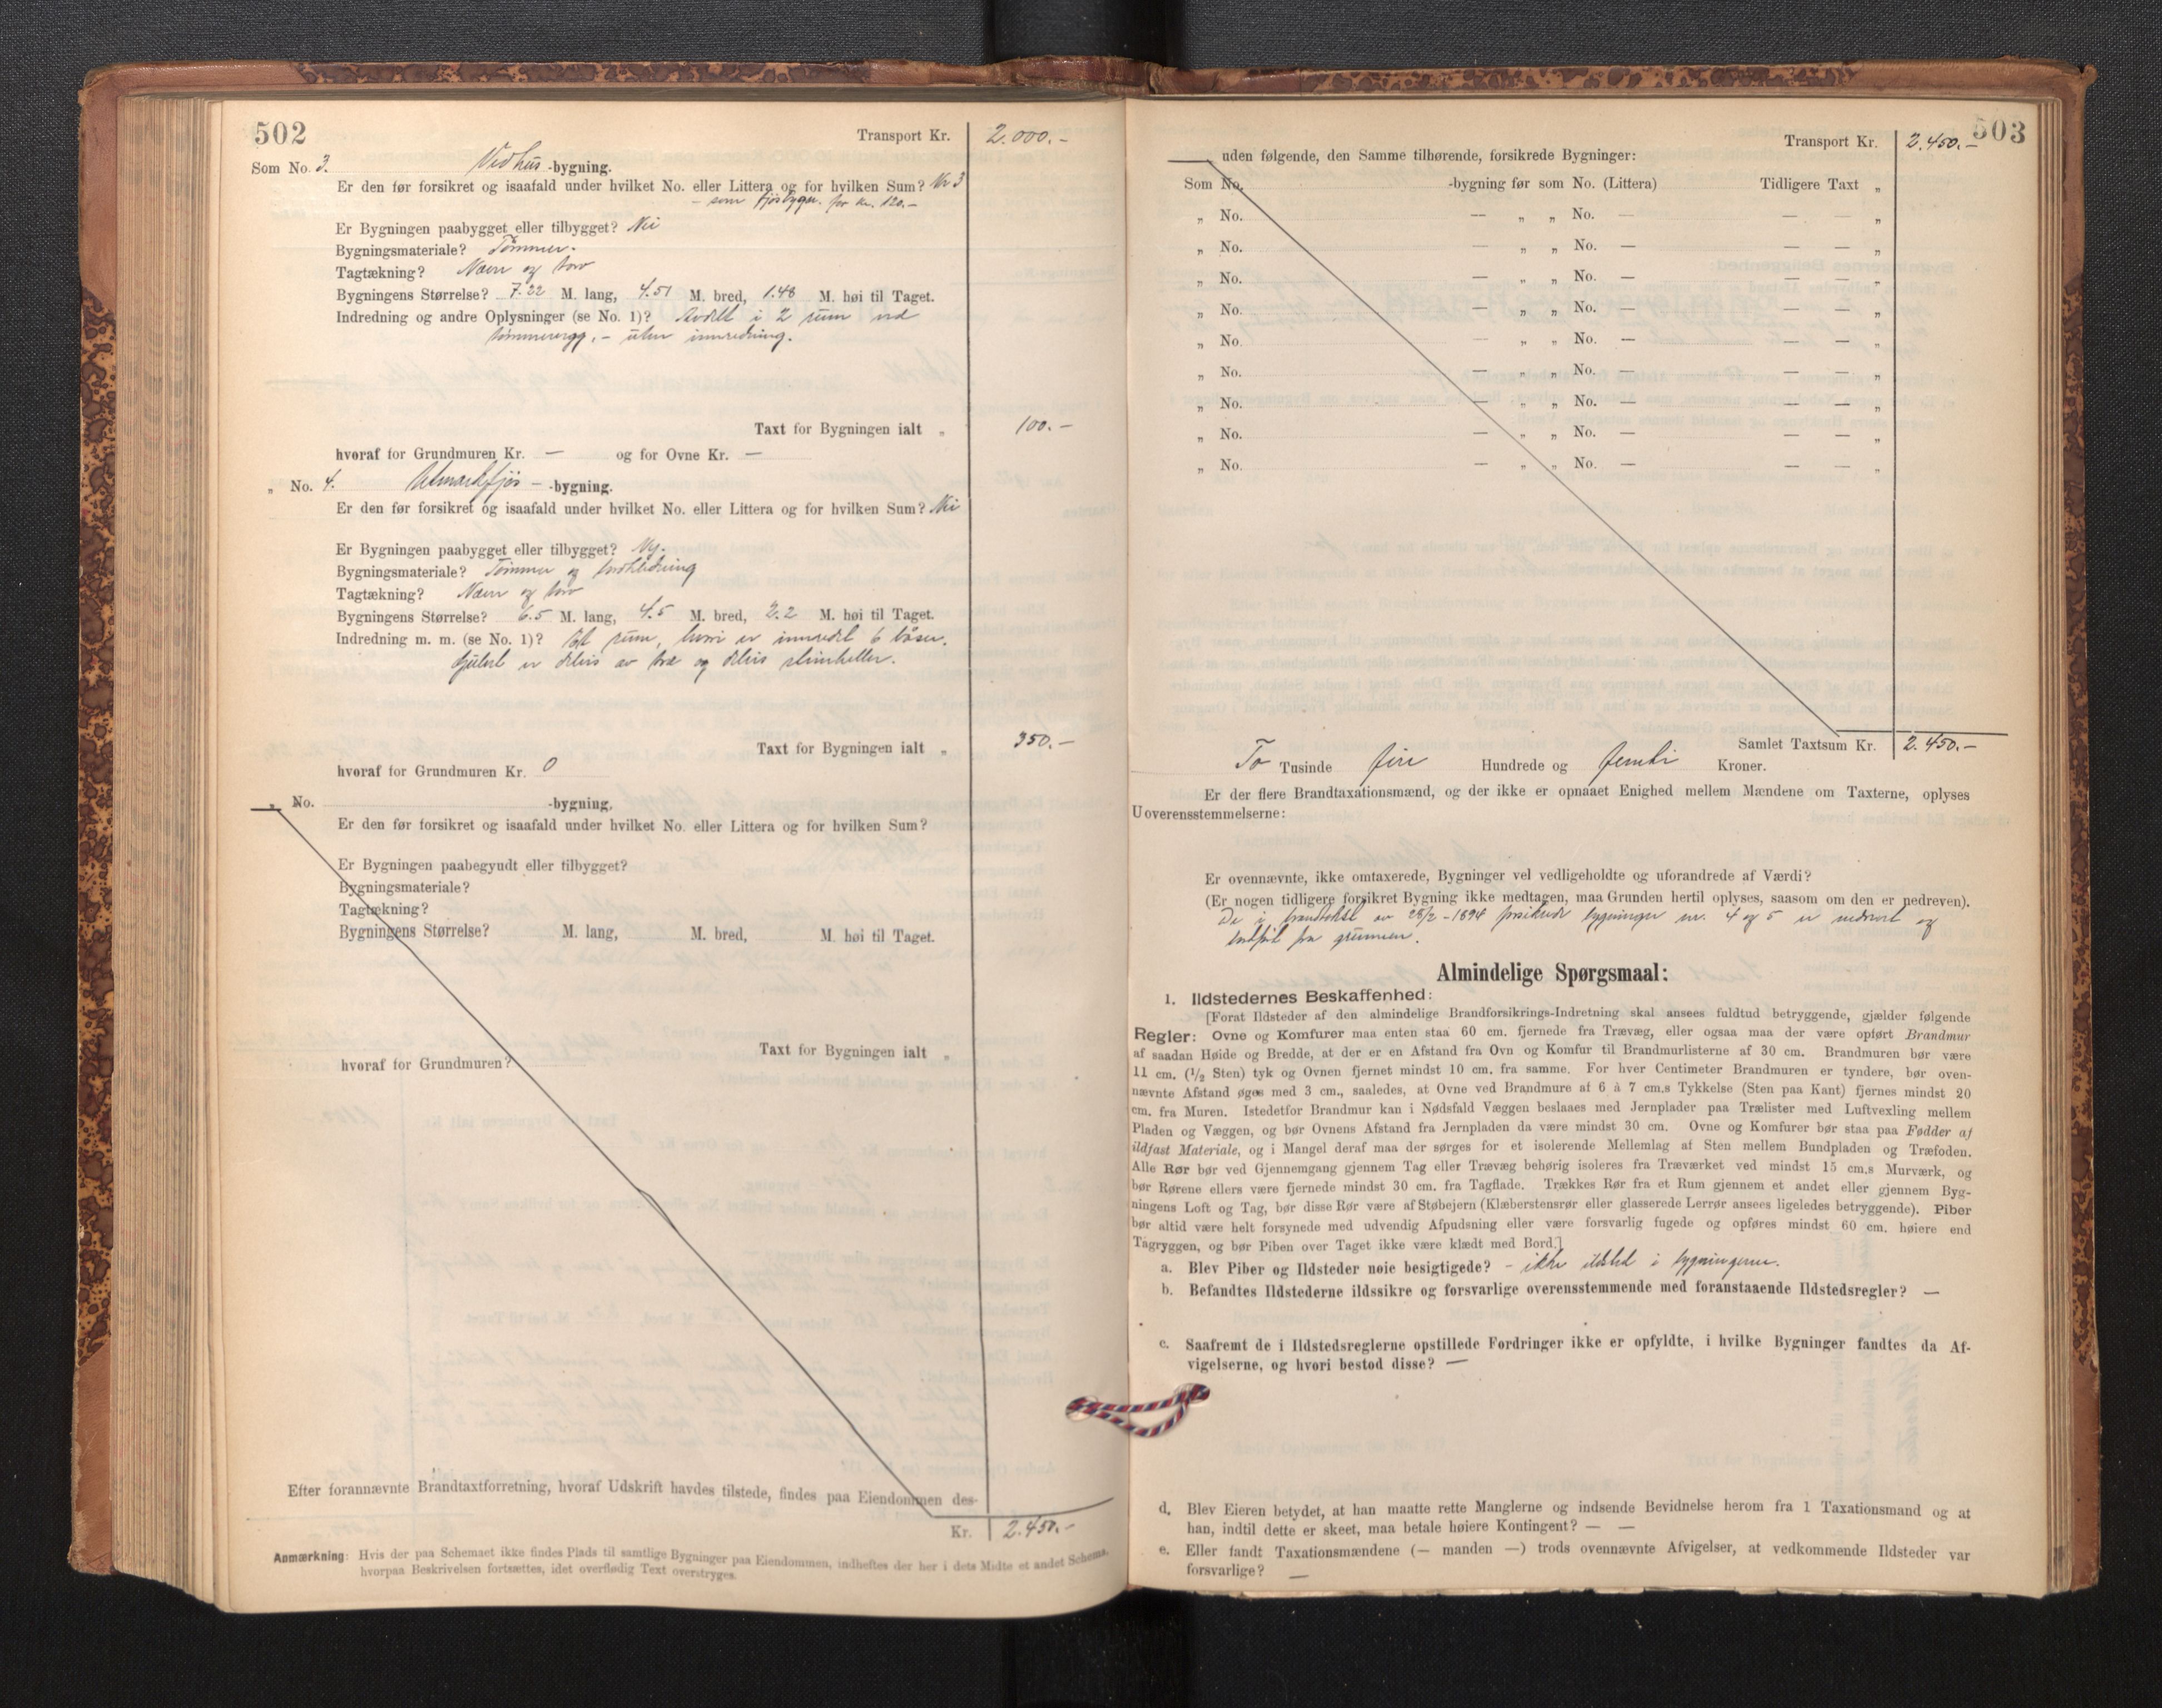 502
Transport Kr. 2.000.-
Som No. 3. Vedhus -bygning.
Er den før forsikret og isaafald under hvilket No. eller Littera og for hvilken Sum? Nr 3
- som fjøsbygn. for kr. 120.-
Er Bygningen paabygget eller tilbygget? Nei
Bygningsmateriale? Tømmer.
Tagtækning? Næver og torv
Bygningens Størrelse? 7.22 M. lang, 4.51 M. bred, 1.48 M. høi til Taget.
Indredning og andre Oplysninger (se No. 1)? Avdelt i 2 rum ved
tømmervegg, - uten innredning.
Taxt for Bygningen ialt „ 100.-
hvoraf for Grundmuren Kr. — og for Ovne Kr. —
„ No. 4. Utmarkfjøs - -bygning.
Er den før forsikret og isaafald under hvilket No. eller Littera og for hvilken Sum? Nei
Er Bygningen paabygget eller tilbygget? Ny.
Bygningsmateriale? Tømmer og bordkledning
Tagtækning? Næver og torv
Bygningens Størrelse? 6.5 M. lang, 4.5 M. bred, 2.2 M. høi til Taget.
Indredning m. m. (se No. 1)? Et rum, hvori er innredet 6 båser.
Gulvet er delvis av træ og delvis stenheller.
Taxt for Bygningen ialt „ 350.-
hvoraf for Grundmuren Kr. 0
„ No. -bygning.
Er den før forsikret og isaafald under hvilket No. eller Littera og for hvilken Sum?
Er Bygningen paabegyndt eller tilbygget?
Bygningsmateriale?
Tagtækning?
Bygningens Størrelse? M. lang, M. bred, M. høi til Taget.
Taxt for Bygningen ialt „
hvoraf for Grundmuren?
Efter forannævnte Brandtaxtforretning, hvoraf Udskrift havdes tilstede, findes paa Eiendommen des-
Kr. 2.450.-
Anmærkning: Hvis der paa Schemaet ikke findes Plads til samtlige Bygninger paa Eiendommen, indheftes der her i dets Midte et andet Schema,
hvorpaa Beskrivelsen fortsættes, idet overflødig Text overstryges.
503
Transport Kr. 2.450.-
uden følgende, den Samme tilhørende, forsikrede Bygninger:
Som No. -bygning før som No. (Littera) Tidligere Taxt „
„ No. — „ „ No. — — — „
„ No. — „ „ No. — — — „
„ No. — „ „ No. — — — „
„ No. — „ „ No. — — — „
„ No. — „ „ No. — — — „
„ No. — „ „ No. — — — „
„ No. — „ „ No. — — — „
„ No. — „ „ No. — — — „
„ No. — „ „ No. — — — „
Samlet Taxtsum Kr. 2.450.-
To Tusinde fire Hundrede og femti Kroner.
Er der flere Brandtaxationsmænd, og der ikke er opnaaet Enighed mellem Mændene om Taxterne, oplyses
Uoverensstemmelserne:
Er ovennævnte, ikke omtaxerede, Bygninger vel vedligeholdte og uforandrede af Værdi?
(Er nogen tidligere forsikret Bygning ikke medtagen, maa Grunden hertil oplyses, saasom om den er nedreven).
De i branntakst av 28/2 - 1894 forsikrede bygninger nr. 4 og 5 er nedrevet og
fra grunnen.
Almindelige Spørgsmaal:
1. Ildstedernes Beskaffenhed:
[Forat Ildsteder af den almindelige Brandforsikrings-Indretning skal ansees fuldtud betryggende, gjælder følgende
Regler: Ovne og Komfurer maa enten staa 60 cm. fjernede fra Trævæg, eller ogsaa maa der være opført Brandmur
af saadan Høide og Bredde, at der er en Afstand fra Ovn og Komfur til Brandmurlisterne af 30 cm. Brandmuren bør være
11 cm. (1/2 Sten) tyk og Ovnen fjernet mindst 10 cm. fra samme. For hver Centimeter Brandmuren er tyndere, bør oven-
nævnte Afstand øges med 3 cm., saaledes, at Ovne ved Brandmure af 6 à 7 cm.s Tykkelse (Sten paa Kant) fjernes mindst 20
cm. fra Muren. Istedetfor Brandmur kan i Nødsfald Væggen beslaaes med Jernplader paa Trælister med Luftvexling mellem
Pladen og Væggen, og bør Ovnens Afstand fra Jernpladen da være mindst 30 cm. Ovne og Komfurer bør staa paa Fødder af
ildfast Materiale, og i Mangel deraf maa der sørges for et isolerende Mellemlag af Sten mellem Bundpladen og Træfoden.
Alle Rør bør ved Gjennemgang gjennem Tag eller Trævæg behørig isoleres fra Træværket ved mindst 15 cm.s Murværk, og
bør Rørene ellers være fjernede mindst 30 cm. fra Tagflade. Trækkes Rør fra et Rum gjennem et andet eller gjennem Byg-
ningens Loft og Tag, bør disse Rør være af Støbejern (Klæberstensrør eller glasserede Lerrør ansees ligeledes betryggende). Piber
bør altid være helt forsynede med udvendig Afpudsning eller være forsvarlig fugede og opføres mindst 60 cm. høiere end
Tagryggen, og bør Piben over Taget ikke være klædt med Bord.]
a. Blev Piber og Ildsteder nøie besigtigede? - ikke ildsted i bygningerne.
b. Befandtes Ildstederne ildssikre og forsvarlige overensstemmende med foranstaaende Ildstedsregler? —
c. Saafremt de i Ildstedsreglerne opstillede Fordringer ikke er opfyldte, i hvilke Bygninger fandtes da Af-
vigelserne, og hvori bestod disse? —
d. Blev Eieren betydet, at han maatte rette Manglerne og indsende Bevidnelse herom fra 1 Taxationsmand og at
han, indtil dette er skeet, maa betale høiere Kontingent? — —
e. Eller fandt Taxationsmændene (— manden —) trods ovennævnte Afvigelser, at vedkommende Ildsteder var
forsvarlige? —